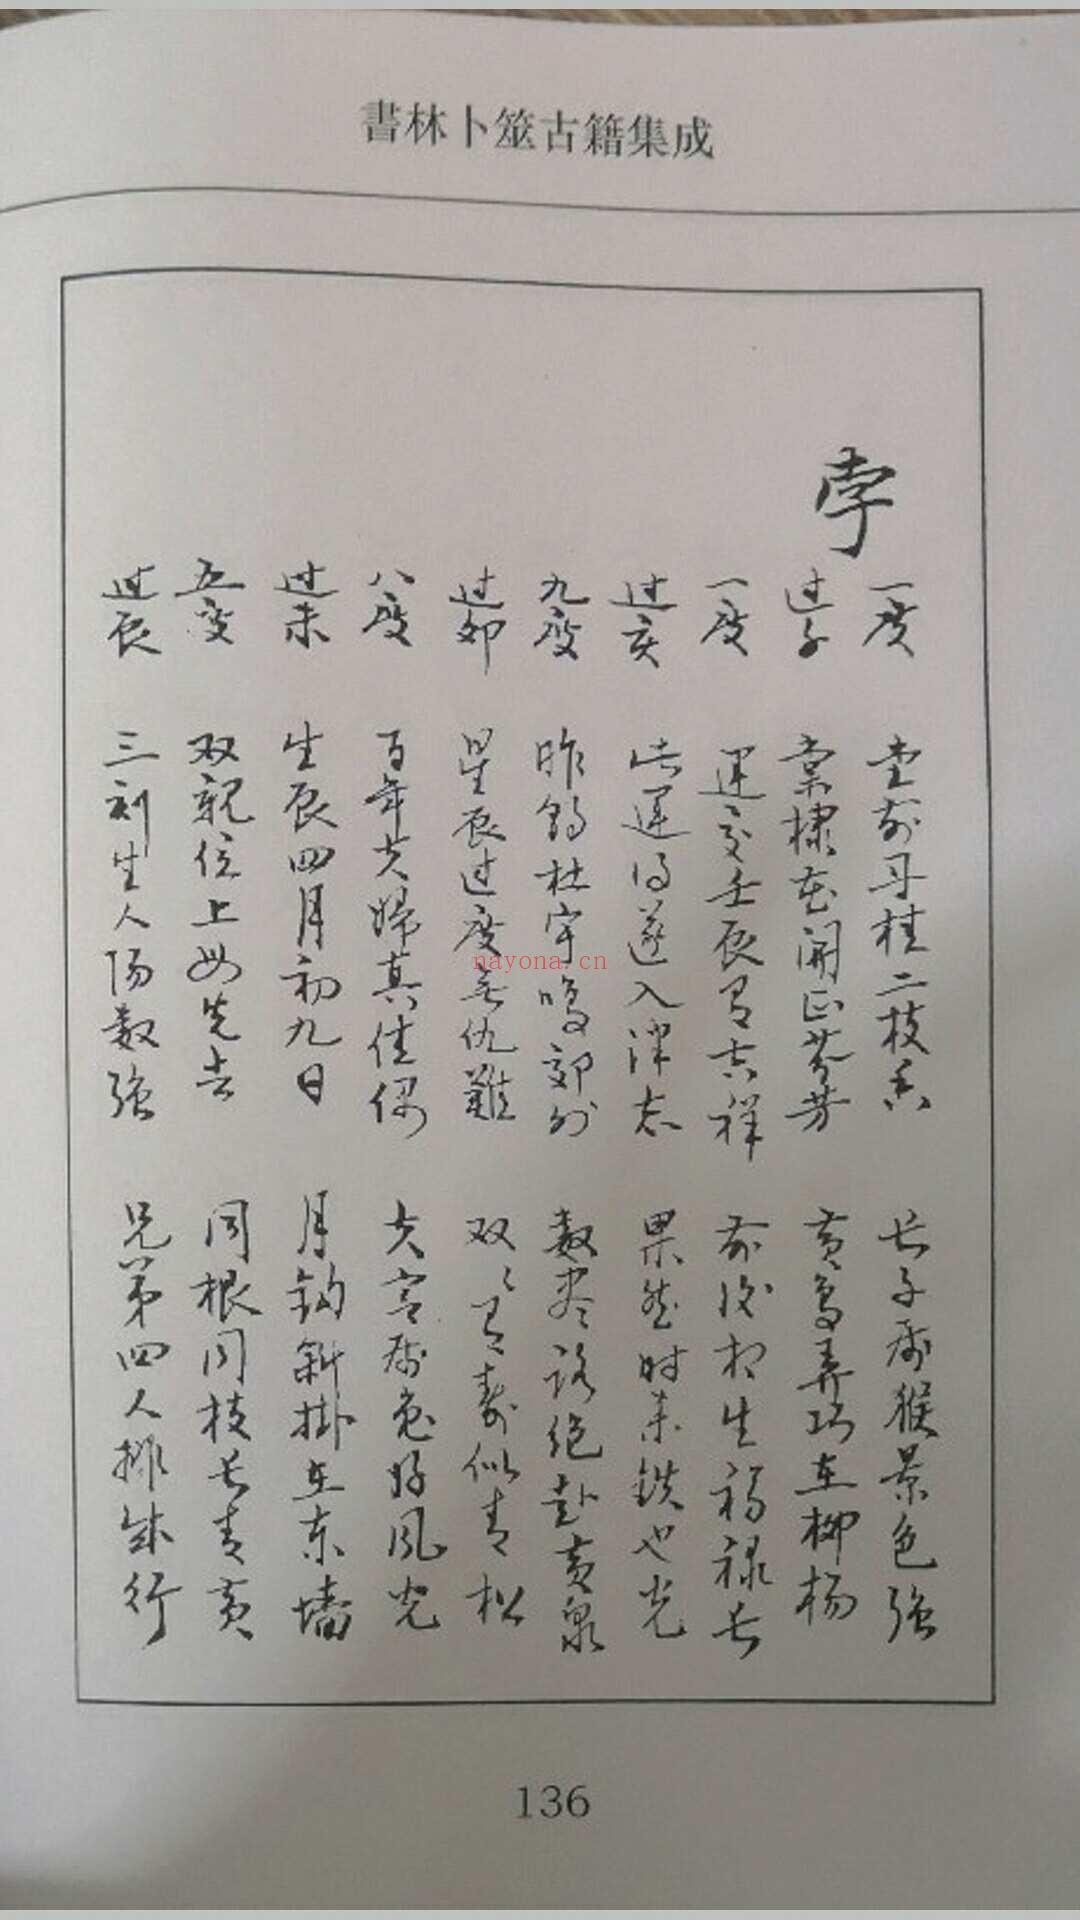 書林卜筮古籍集成
孛
一度 堂前丹桂二枝香 长子属猴景色强
过子 棠棣花開正芬芳 黄鸟弄巧在柳杨
一度 運交壬辰有吉祥 前后相生福禄长
过亥 此運得遂入泮志 果然时来铁也光
九度 昨夜杜宇鳴郊外 数尽路绝赴黄泉
过卯 星辰过度無仇難 双双有寿似青松
八度 百年夫婦真佳偶 夫宫属兔好风光
过未 生辰四月初九日 月钩斜掛在东墙
五度 双親位上母先去 同根同枝长青黄
过辰 三刻生人陽数强 兄弟四人排成行
nayona.cn
136